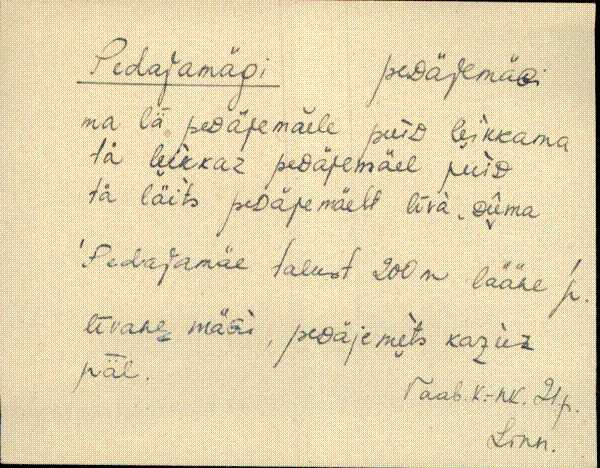 Pedajamägi pedäjemäGi
ma lä pedäjemäele puid leikkama
tä leikkaz pedäjemäel puid
tä läits pedäjemäelt līvà Dūma
Pedajamäe talust 200 m lääne p.
līvane mäGi, pedäjemets kazùz
päl.
Vaab. k.-nk. 21 p.
Linn.